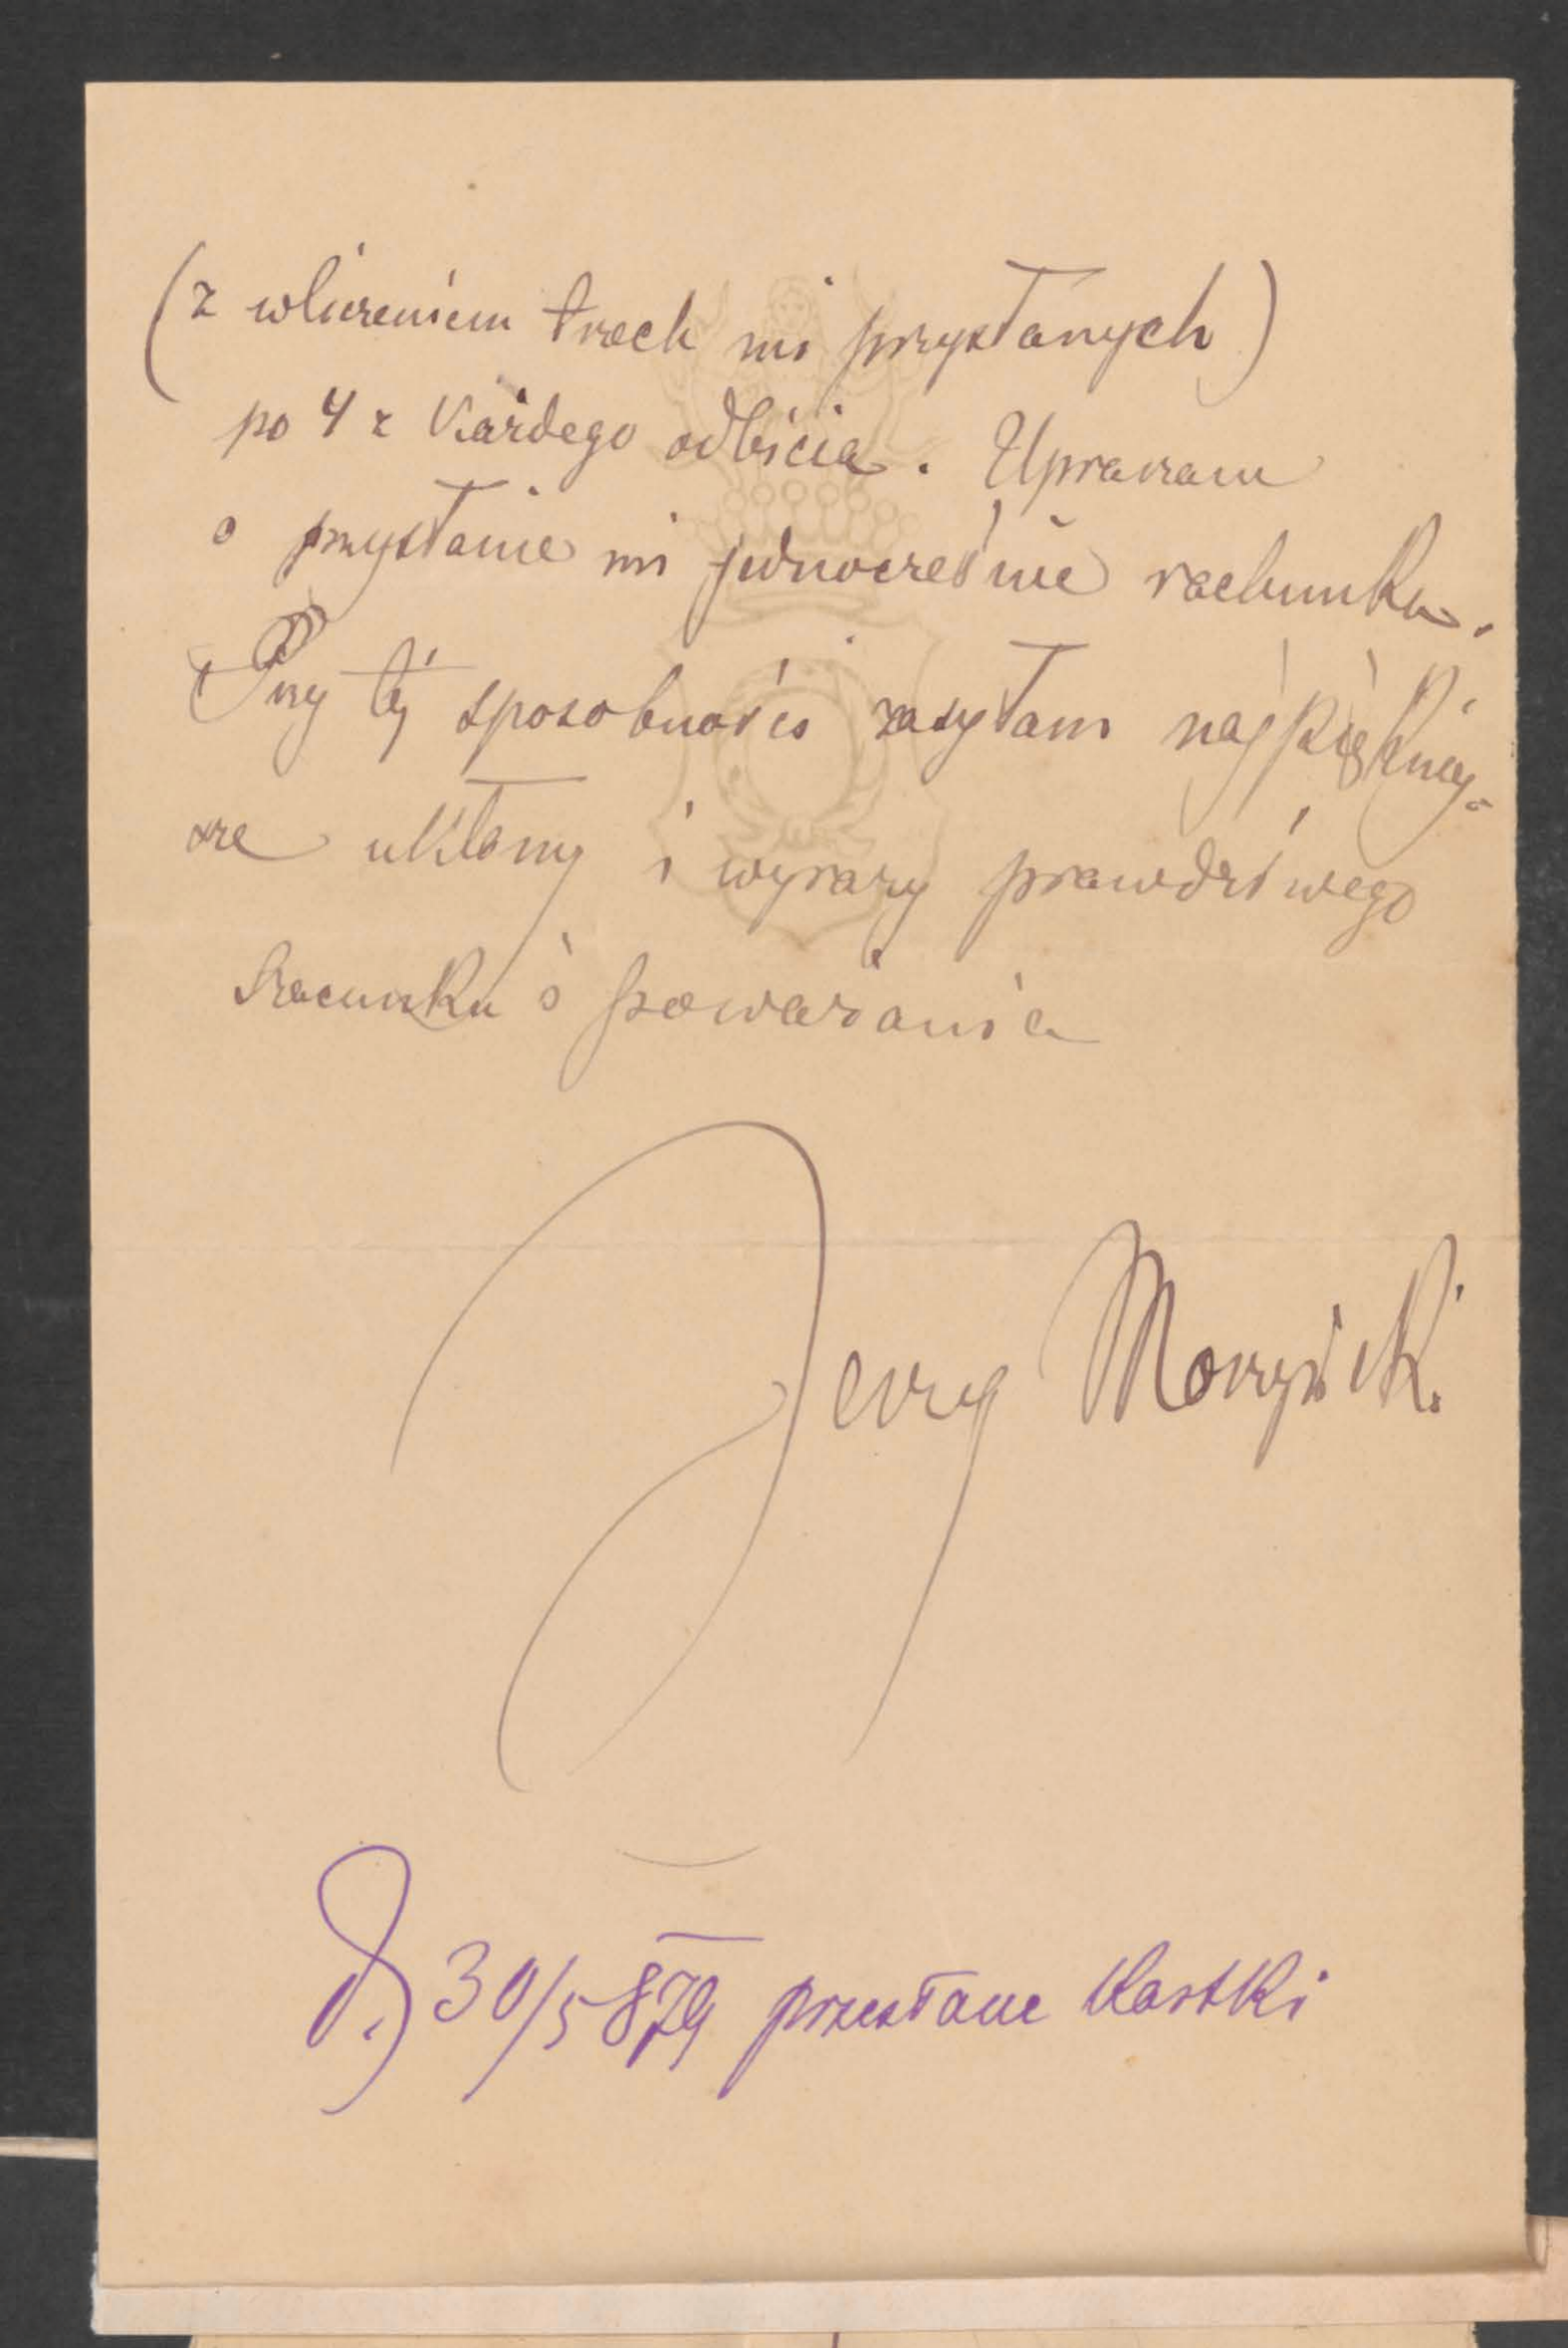 (z wliczeniem trzech mi przysłanych)
po 4 z każdego odbicia. Upraszam
o przysłanie mi jednocześnie rachunku.
Przy téj sposobności zasyłam najpiękniej-
sze ukłony i wyrazy prawdziwego
szacunku i poważania
Jerzy Moszyński
30/5 879 przesłane kartki